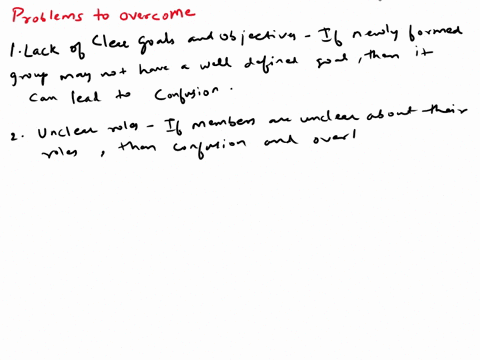 Problems to overcome
1. Lack of Clear Goals and Objectives - If newly formed
group may not have a well defined goal, then it
can lead to Confusion.
2. Unclear roles - If members are unclear about their
roles, then confusion and overl